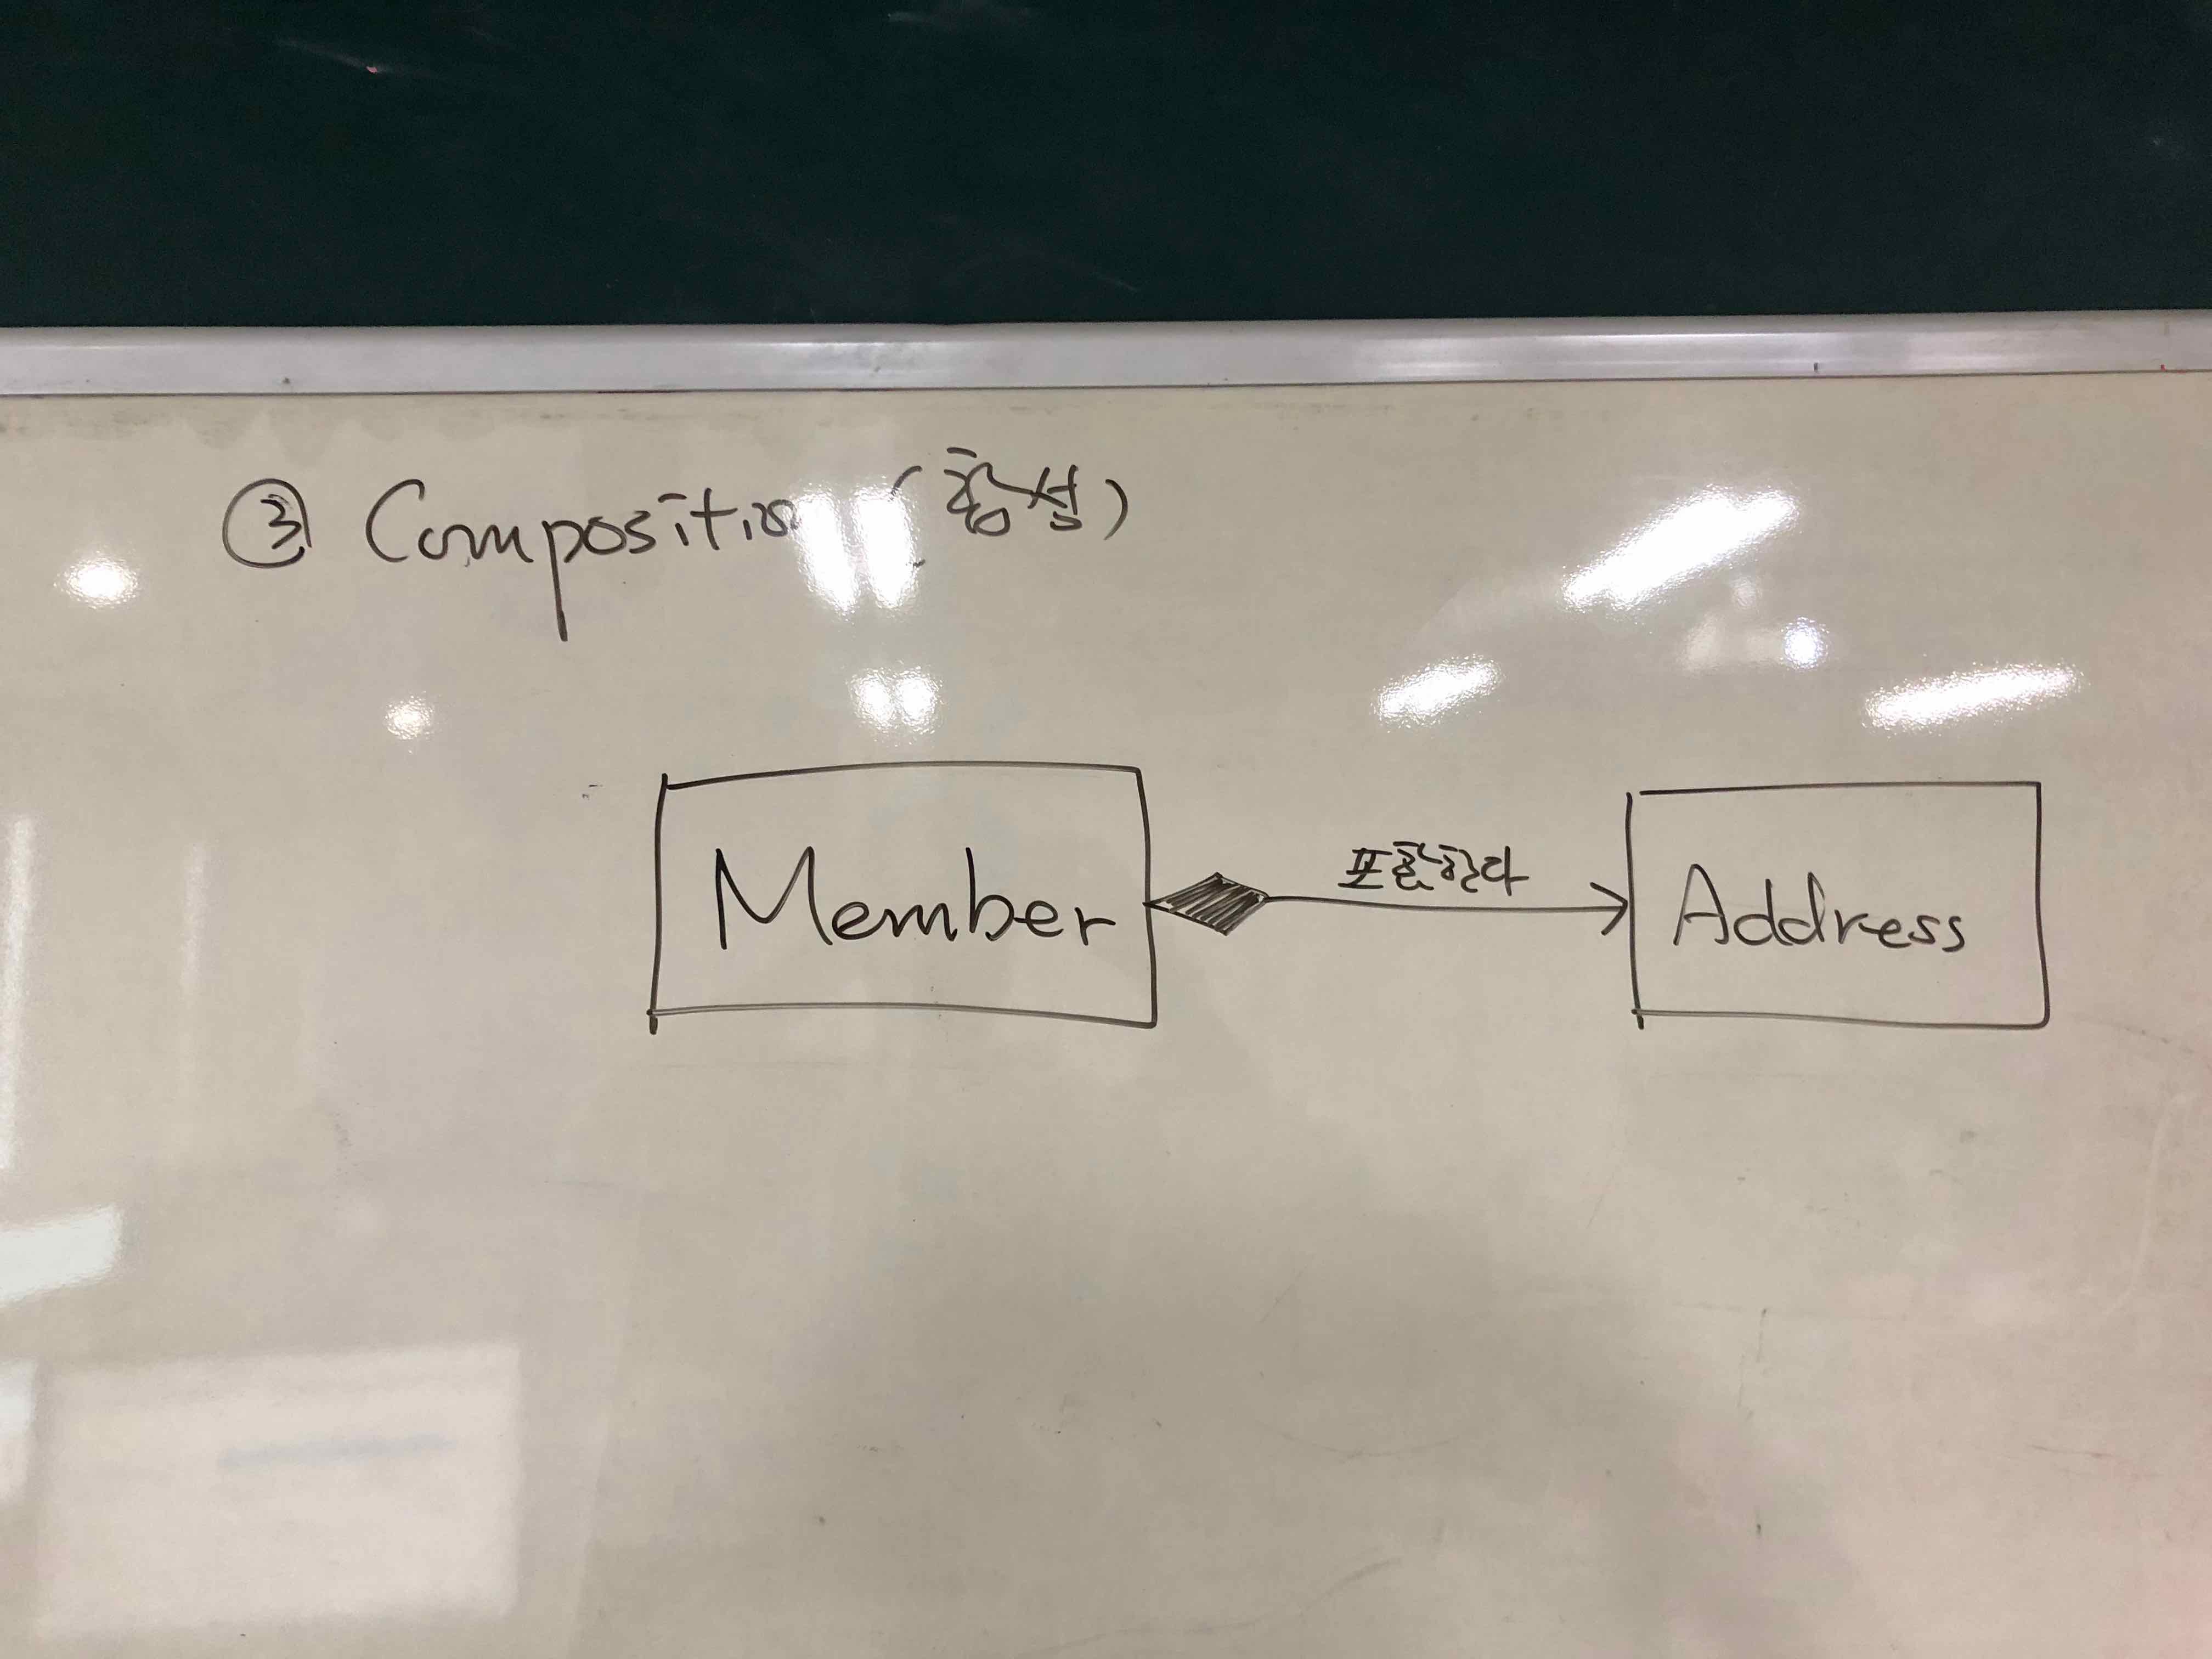 ③ Composition (합성)
Member
포함한다
Address